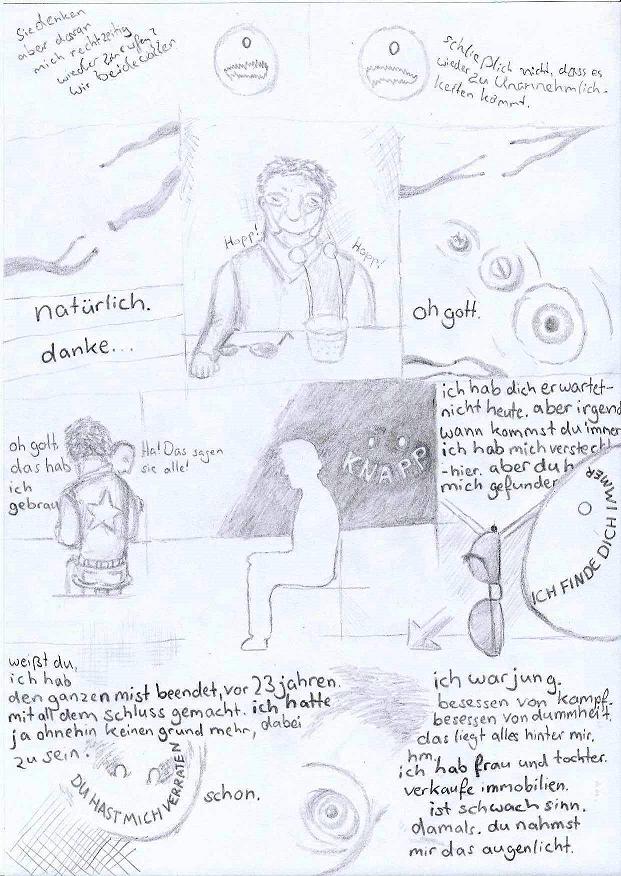 Sie denken
aber daran
mich rechtzeitig
wieder zu rufen?
wir beide wollen
schließlich nicht, dass es
wieder zu Unannehmlich-
keiten kommt.
natürlich.
danke...
Happ!
Happ!
oh gott.
oh gott,
das hab
ich
gebrau
Ha! Das sagen
sie alle!
KNAPP
ich hab dich erwartet-
nicht heute. aber irgend
wann kommst du immer
ich hab mich versteck
-hier. aber du h
mich gefunden
ICH FINDE DICH IMMER
weißt du,
ich hab
den ganzen mist beendet, vor 23 jahren.
mit all dem schluss gemacht. ich hatte
ja ohnehin keinen grund mehr, dabei
zu sein.
DU HAST MICH VERRATEN
schon.
ich war jung.
besessen von kampf.
besessen von dummheit.
das liegt alles hinter mir.
hm,
ich hab frau und tochter.
verkaufe immobilien.
ist schwachsinn.
damals. du nahmst
mir das augenlicht.